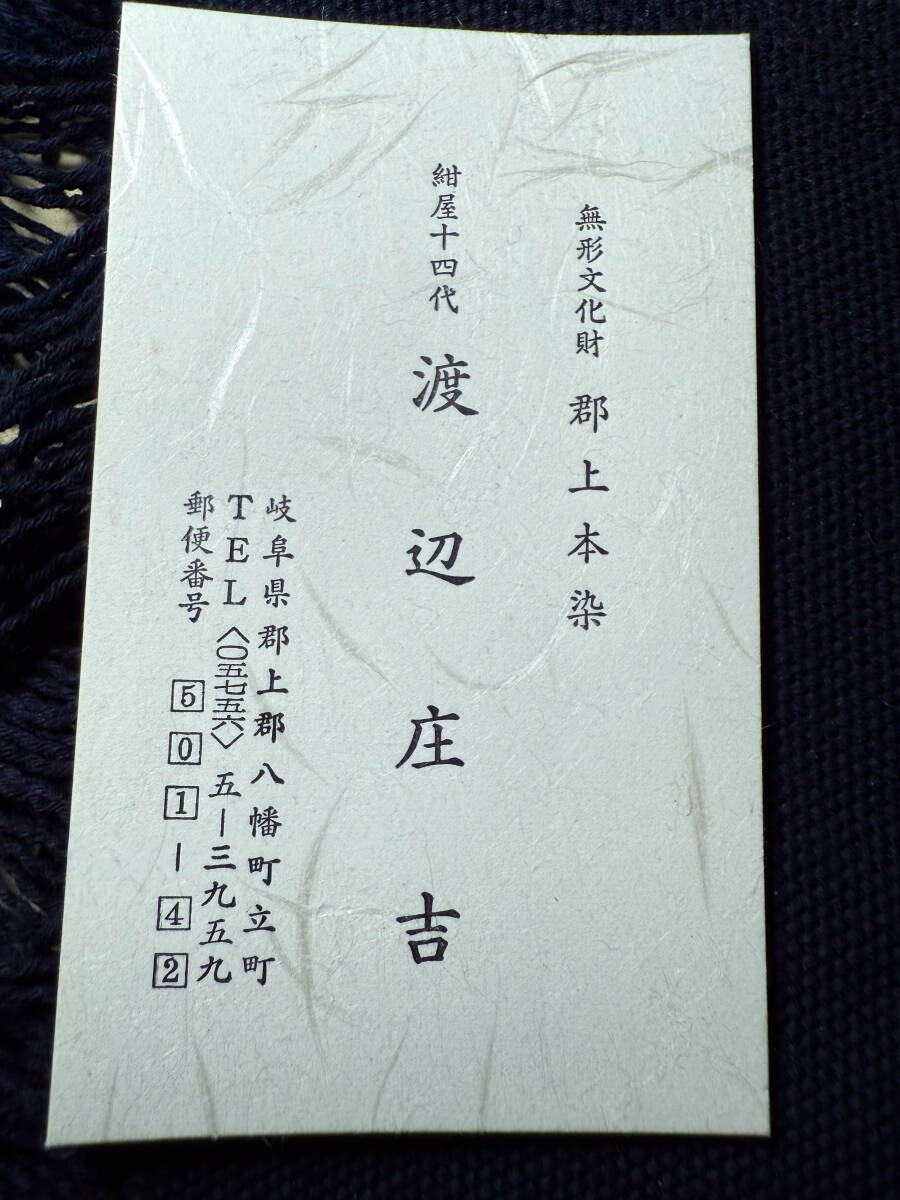 無形文化財 郡上本染
紺屋十四代 渡辺庄吉
岐阜県郡上郡八幡町立町
TEL〈〇五七五六〉五―三九五九
郵便番号 501―42